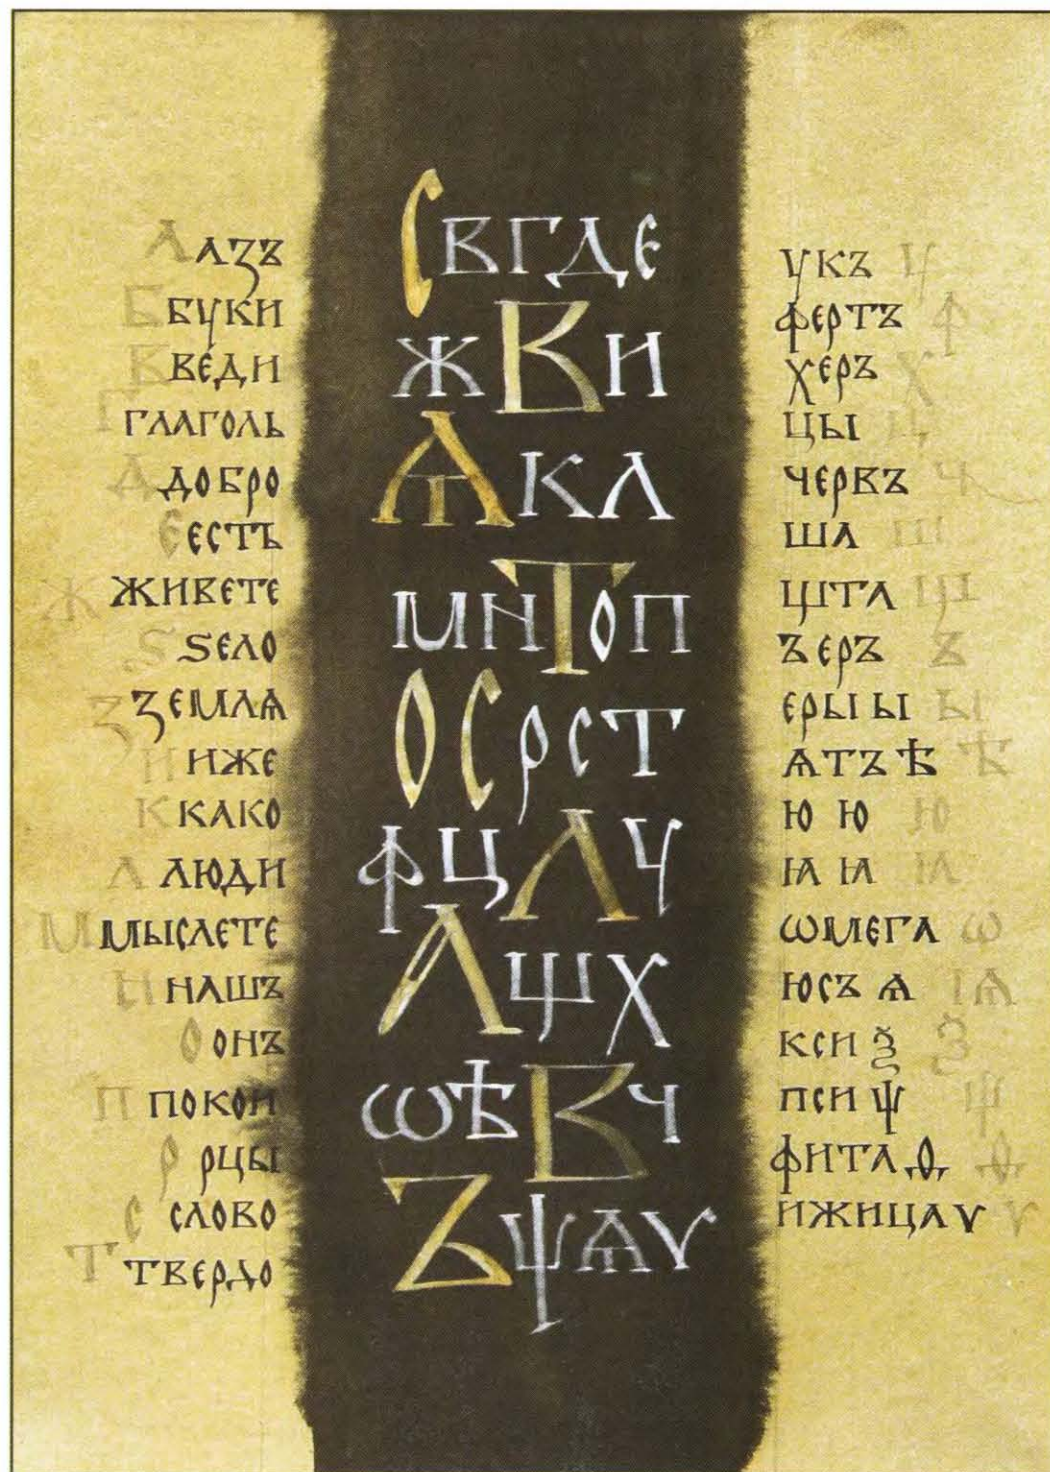 А АЗЪ
Б БУКИ
В ВЕДИ
Г ГЛАГОЛЬ
Д ДОБРО
Є ЄСТЬ
Ж ЖИВЕТЕ
Ѕ ЅЕЛО
З ЗЕМЛѦ
И ИЖЕ
К КАКО
Л ЛЮДИ
М МЫСЛЕТЕ
Н НАШЪ
О ОНЪ
П ПОКОИ
Р РЦЫ
С СЛОВО
Т ТВЕРДО
СВГДЄ
ЖВИ
ѦКЛ
МНТОП
ОСРСТ
ФЦЛЧ
ЛѰХ
ѠѢВЧ
ЪѰѦѴ
УКЪ У
ФЕРТЪ Ф
ХЕРЪ Х
ЦЫ Ц
ЧЕРВЪ Ч
ША Ш
ЩТА Щ
Ъ ЕРЪ Ъ
ЕРЫ Ы Ы
ѦТЪ Ѣ Ѣ
Ю Ю Ю
Ꙗ Ꙗ Ꙗ
ѠМЕГА Ѡ
ЮСЪ Ѧ Ѩ
КСИ Ѯ Ѯ
ПСИ Ѱ Ѱ
ФИТА Ѳ Ѳ
ИЖИЦА Ѵ Ѵ